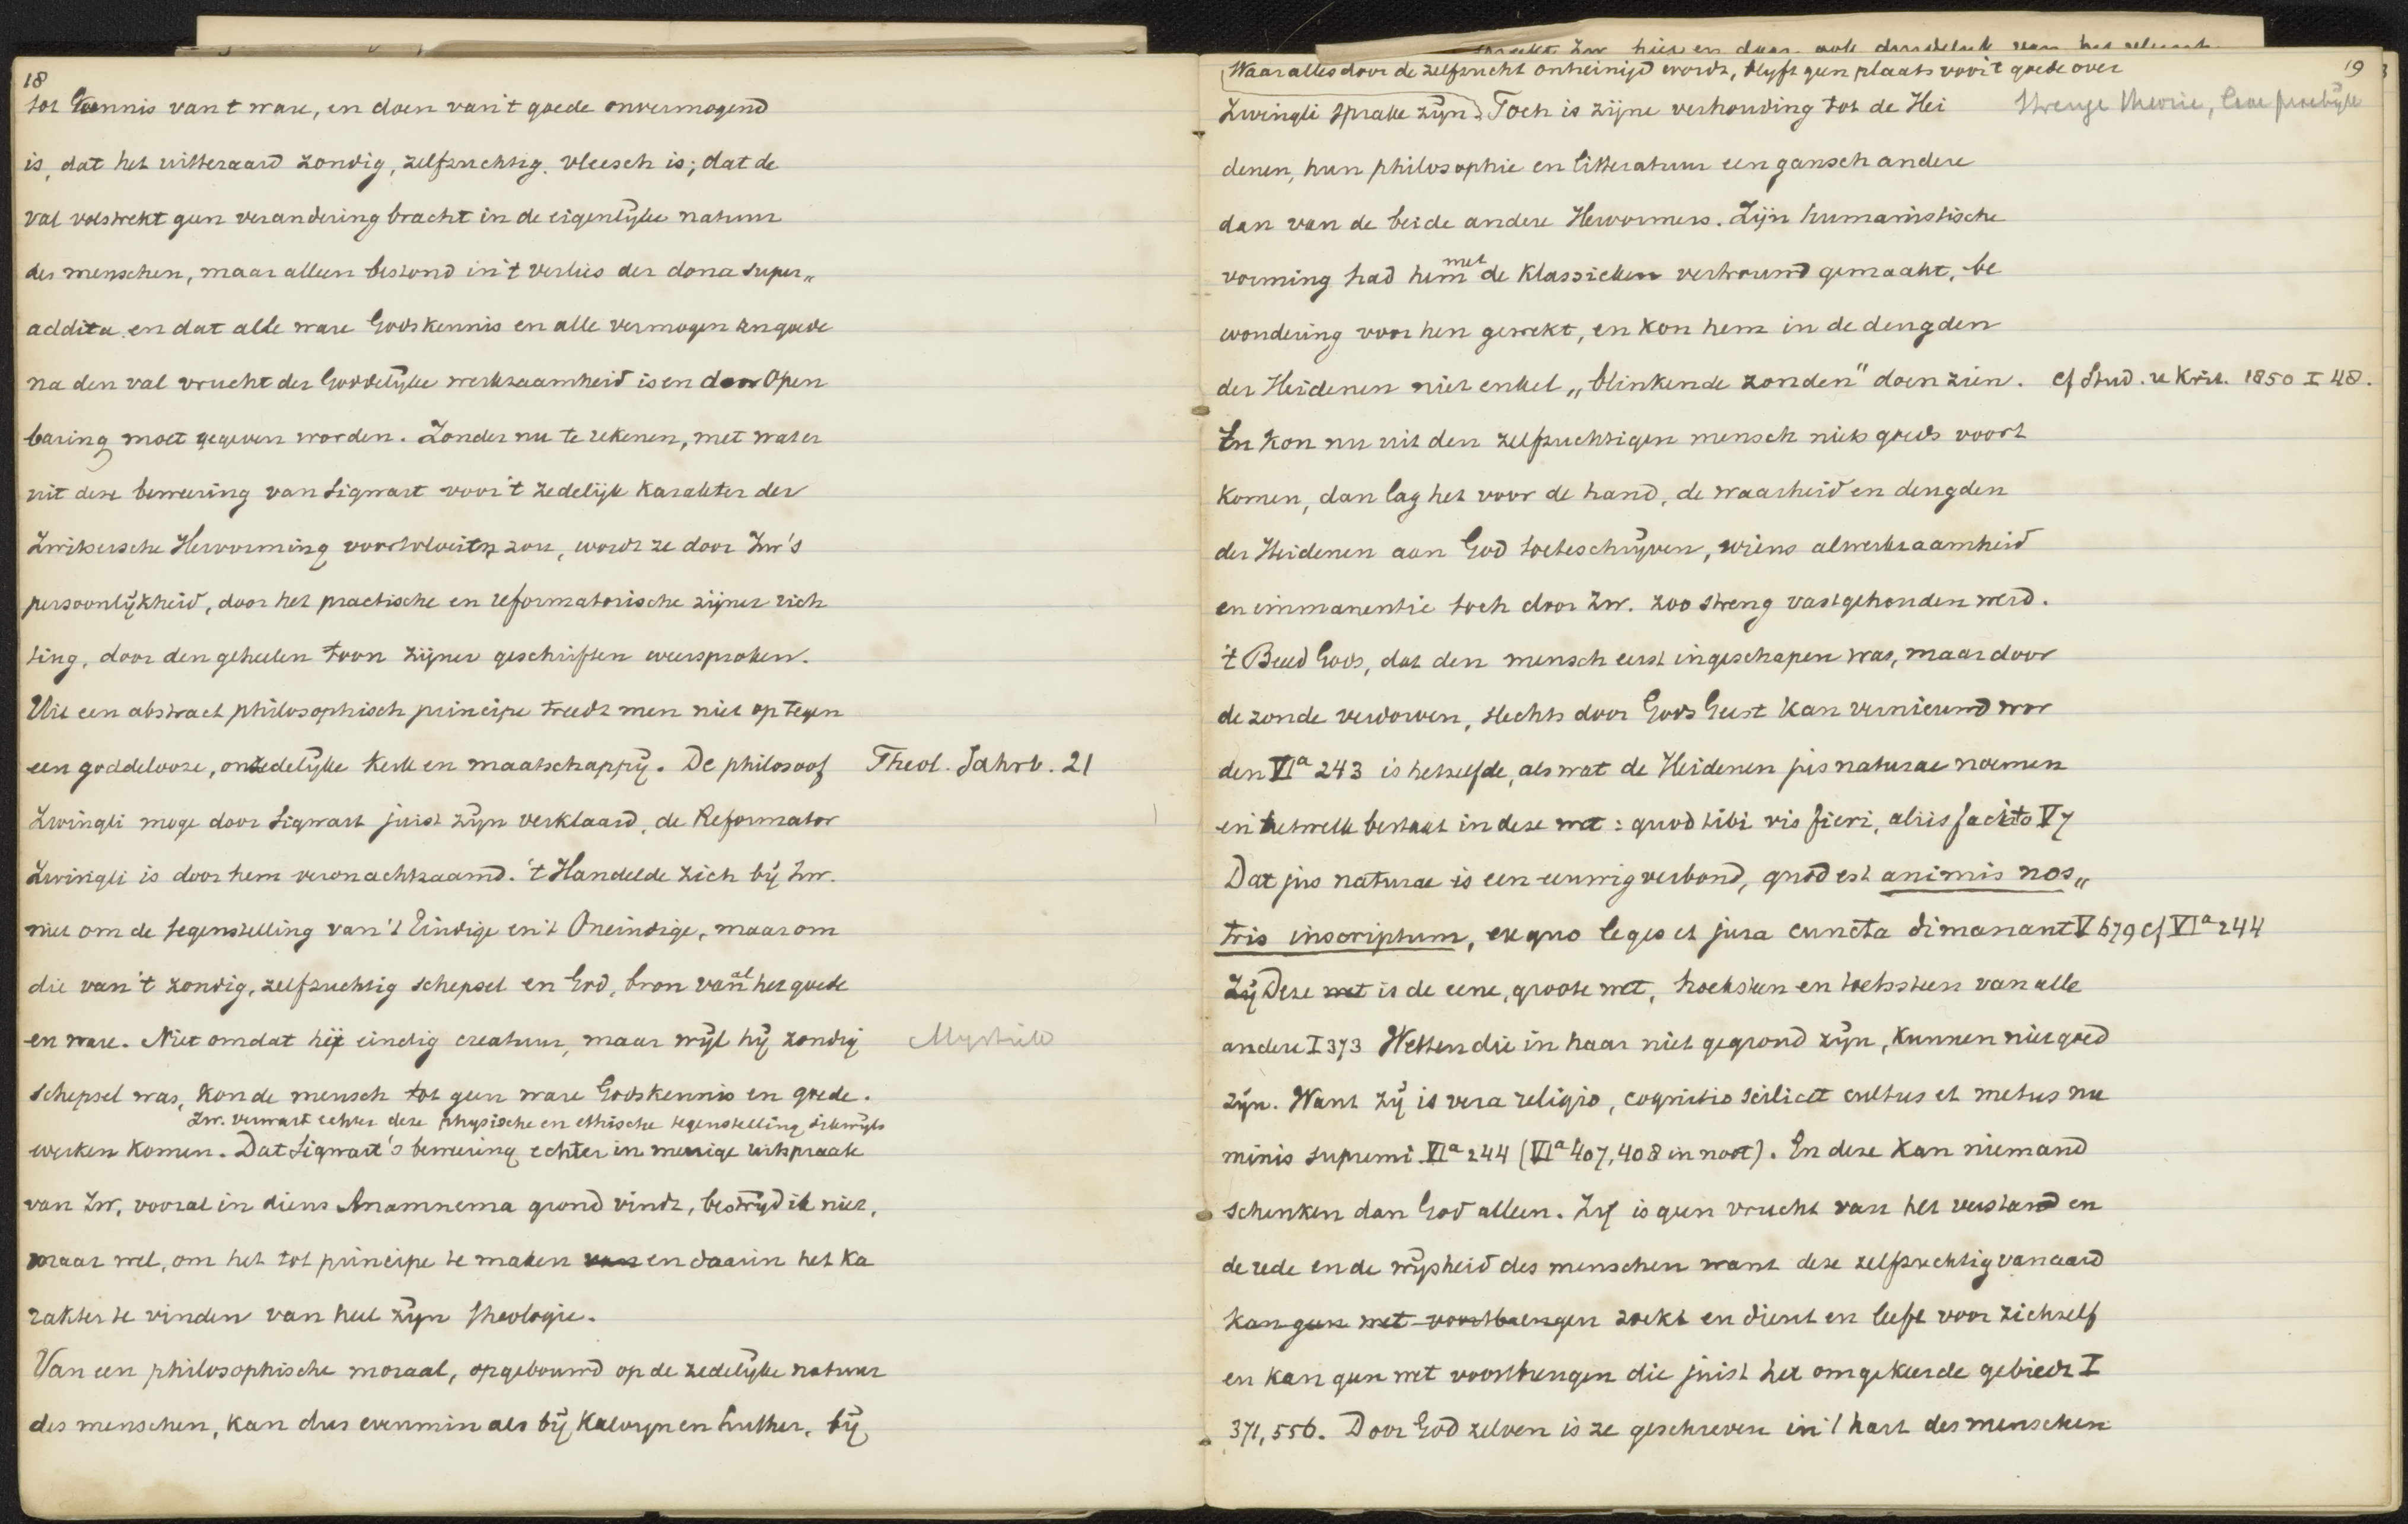 18
tot kennis van t ware, en doen van 't goede onvermogend
is, dat het uitteraard zondig, zelfzuchtig vleesch is; dat de
val volstrekt geen verandering bracht in de eigenlijke natuur
des menschen, maar alleen bestond in 't verlies der dona super„
addita en dat alle ware Godskennis en alle vermogen ten goede
na den val vrucht der Goddelijke werkzaamheid is en door Open
baring moet gegeven worden. Zonder nu te rekenen, met wat er
uit deze bewering van Sigwart voor 't zedelijk karakter der
Zwitsersche Hervorming voortvloeien zou, wordt ze door Zw's
persoonlijkheid, door het practische en reformatorische zijner rich
ting, door den geheelen toon zijner geschriften weersproken.
Uit een abstract philosophisch principe treedt men niet op tegen
een goddelooze, onzedelijke kerk en maatschappij. De philosoof
Theol. Jahrb. 21
Zwingli moge door Sigwart juist zijn verklaard, de Reformator
Zwingli is door hem veronachtzaamd. 't Handelde zich bij Zw.
niet om de tegenstelling van 't Eindige en 't Oneindige, maar om
die van 't zondig, zelfzuchtig schepsel en God, bron van al het goede
en ware. Niet omdat hij eindig creatuur, maar wijl hij zondig
Mystiek
schepsel was, kon de mensch tot geen ware Godskennis en goede.
Zw. verwart echter deze physische en ethische tegenstelling dikwijls
werken komen. Dat Sigwart's bewering echter in menige uitspraak
van Zw, vooral in diens Anamnema grond vindt, bestrijd ik niet,
maar wel, om het tot principe te maken van en daarin het ka
rakter te vinden van heel zijn theologie.
Van een philosophische moraal, opgebouwd op de zedelijke natuur
des menschen, kan dus evenmin als bij Kalvijn en Luther, bij
19
Waar alles door de zelfzucht ontreinigd wordt, blijft geen plaats voor 't goede over
Zwingli sprake zijn. Toch is zijne verhouding tot de Hei
Strenge theorie, losse praktijk
denen, hun philosophie en litteratuur een gansch andere
dan van de beide andere Hervormers. Zijn humanistische
vorming had hem met de klassieken vertrouwd gemaakt, be
wondering voor hen gewekt, en kon hem in de deugden
der Heidenen niet enkel „blinkende zonden" doen zien.
cf Stud. u Krit. 1850 I 48.
En kon nu uit den zelfzuchtigen mensch niets goeds voort
komen, dan lag het voor de hand, de waarheid en deugden
der Heidenen aan God toeteschrijven, wiens alwerkzaamheid
en immanentie toch door Zw. zoo streng vastgehouden werd.
't Beeld Gods, dat den mensch eerst ingeschapen was, maar door
de zonde verdorven, slechts door Gods Geest kan vernieuwd wor
den VIa 243 is hetzelfde, als wat de Heidenen jus naturae noemen
en hetwelk bestaat in deze wet: quod tibi vis fieri, aliis facito V 7
Dat jus naturae is een eeuwig verbond, quod est animis nos„
tris inscriptum, ex quo leges et jura cuncta dimanant V 679 cf VIa 244
Zij Deze wet is de eene, groote wet, hoeksteen en toetssteen van alle
andere I 373 Wetten die in haar niet gegrond zijn, kunnen niet goed
zijn. Want zij is vera religio, cognitio scilicet cultus et metus nu
minis supremi VIa 244 (VIa 407, 408 in noot). En deze kan niemand
schenken dan God alleen. Zij is geen vrucht van het verstand en
de rede en de wijsheid des menschen want deze zelfzuchtig van aard
kan geen wet voortbrengen zoekt en dient en leeft voor zichzelf
en kan geen wet voortbrengen die juist het omgekeerde gebiedt I
371, 556. Door God zelven is ze geschreven in 't hart des menschen